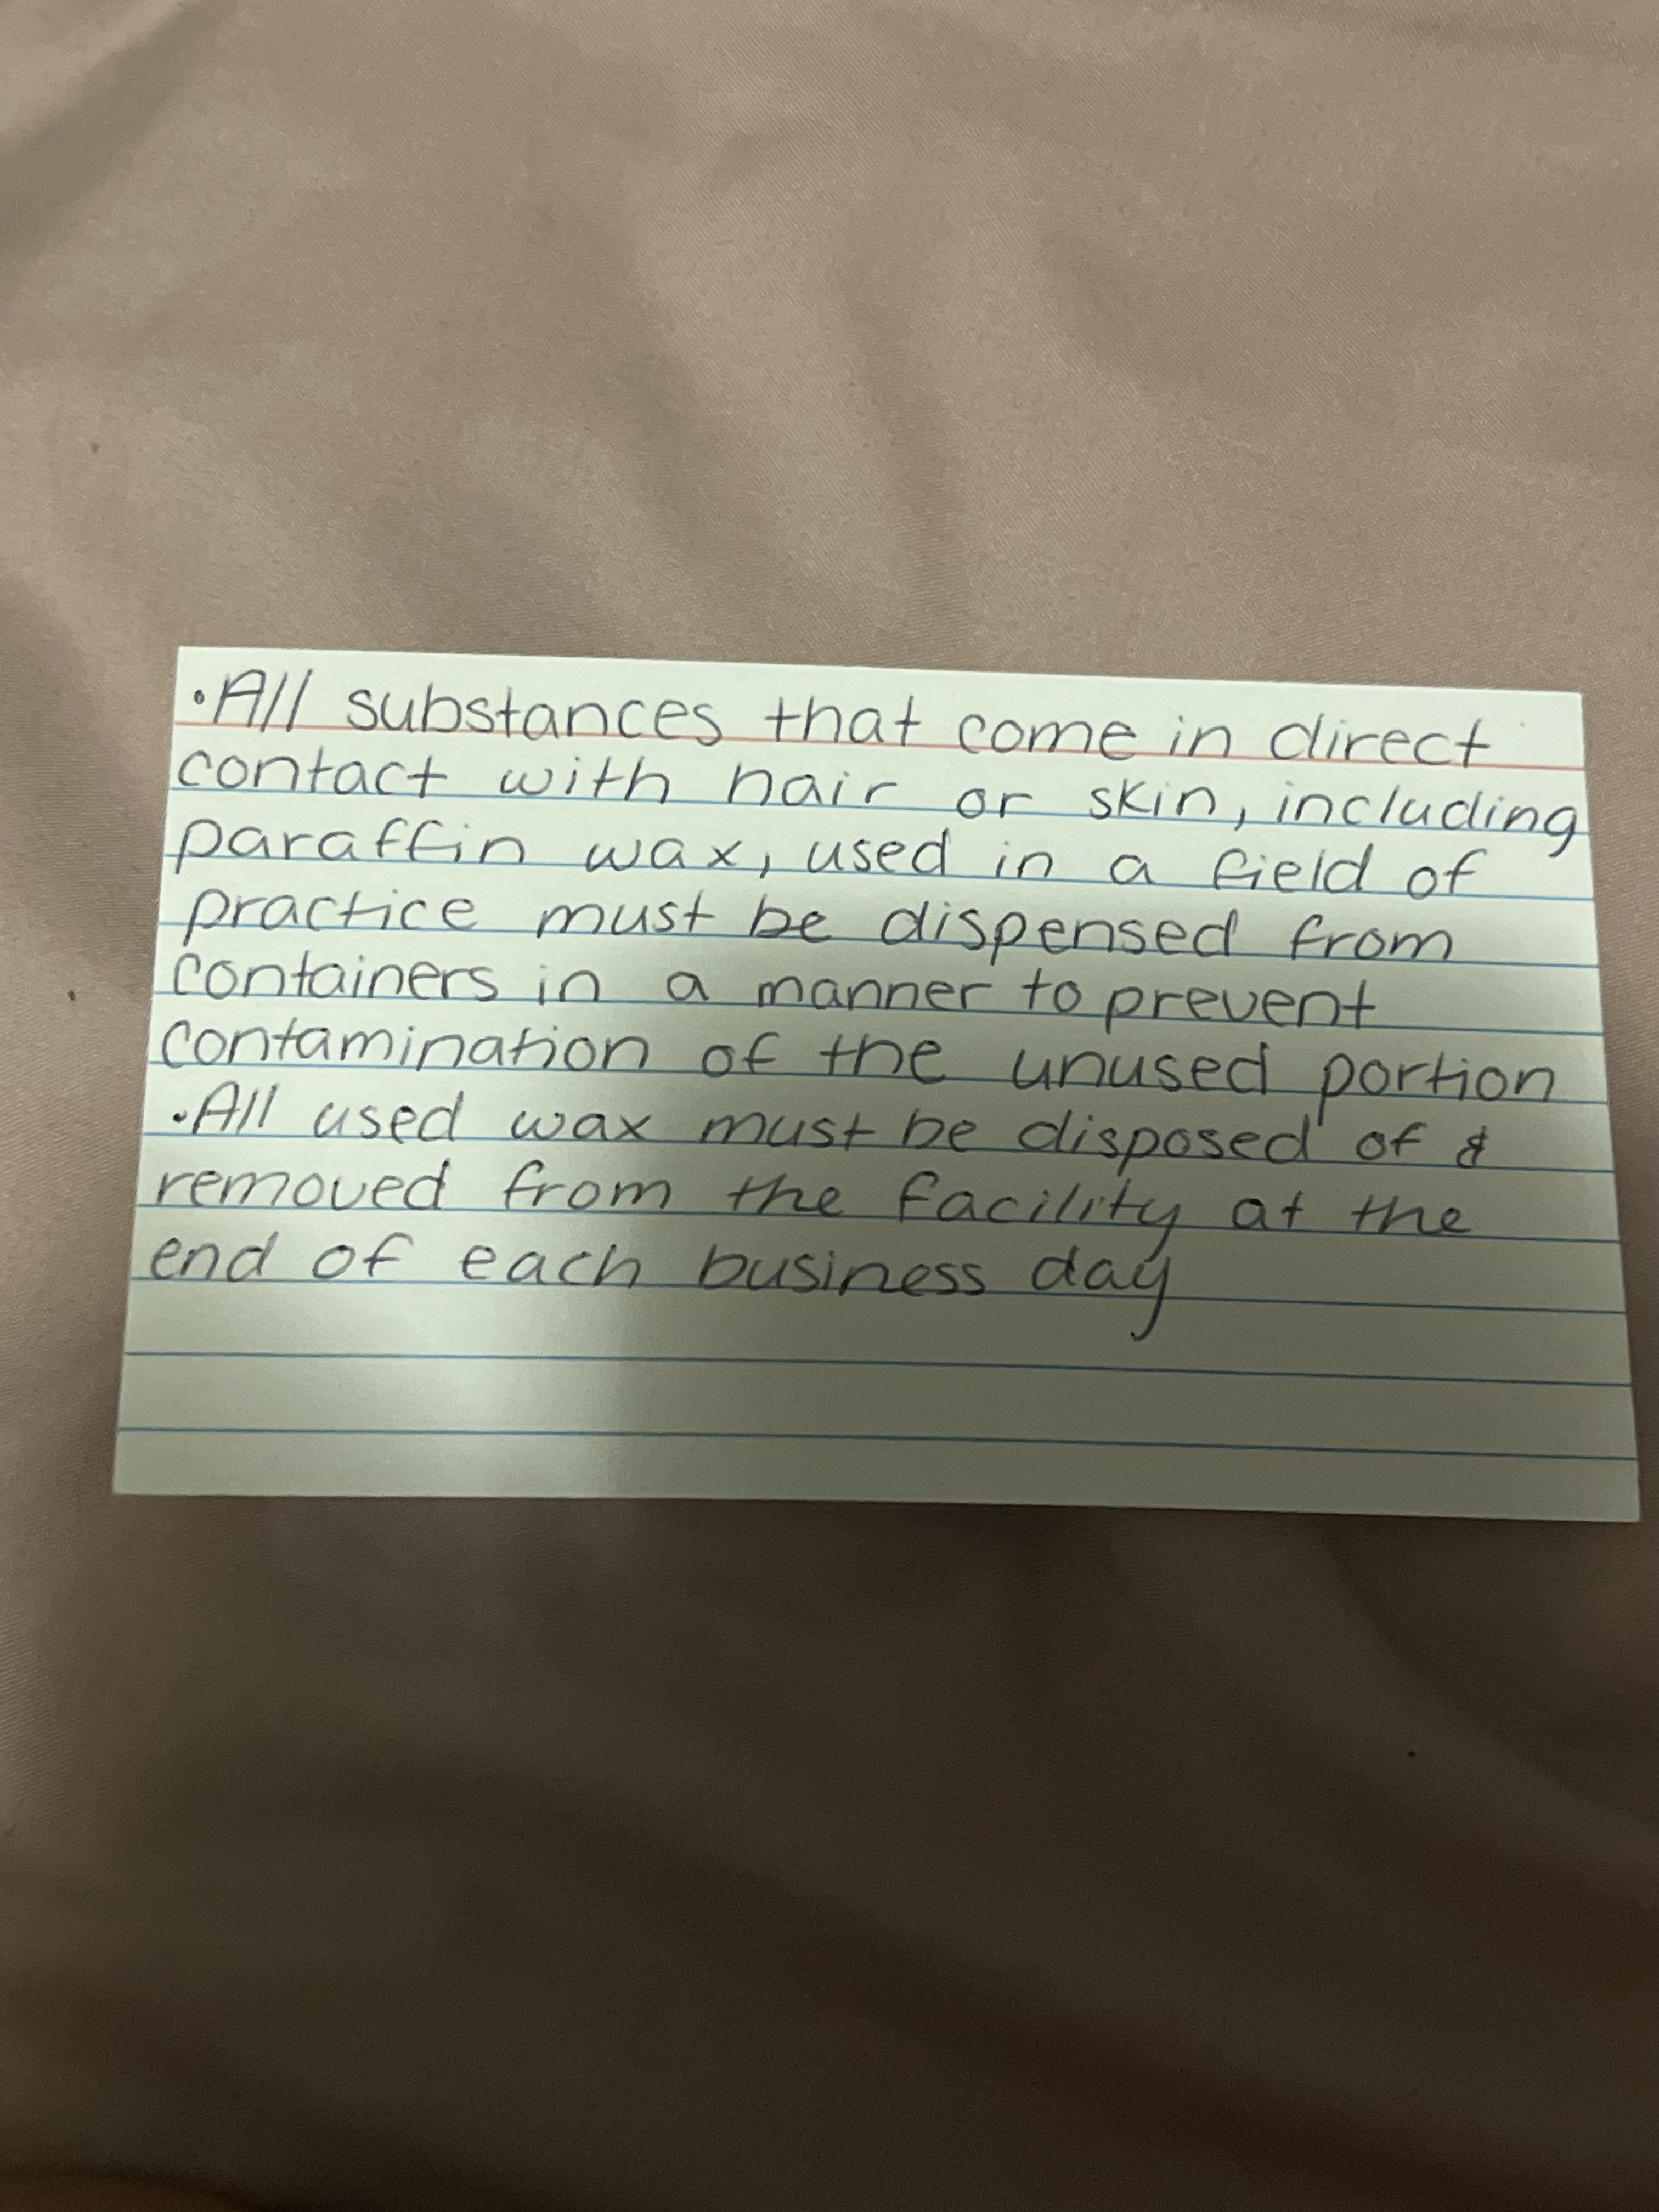 •All substances that come in direct
contact with hair or skin, including
paraffin wax, used in a field of
practice must be dispensed from
containers in a manner to prevent
contamination of the unused portion
•All used wax must be disposed of &
removed from the facility at the
end of each business day